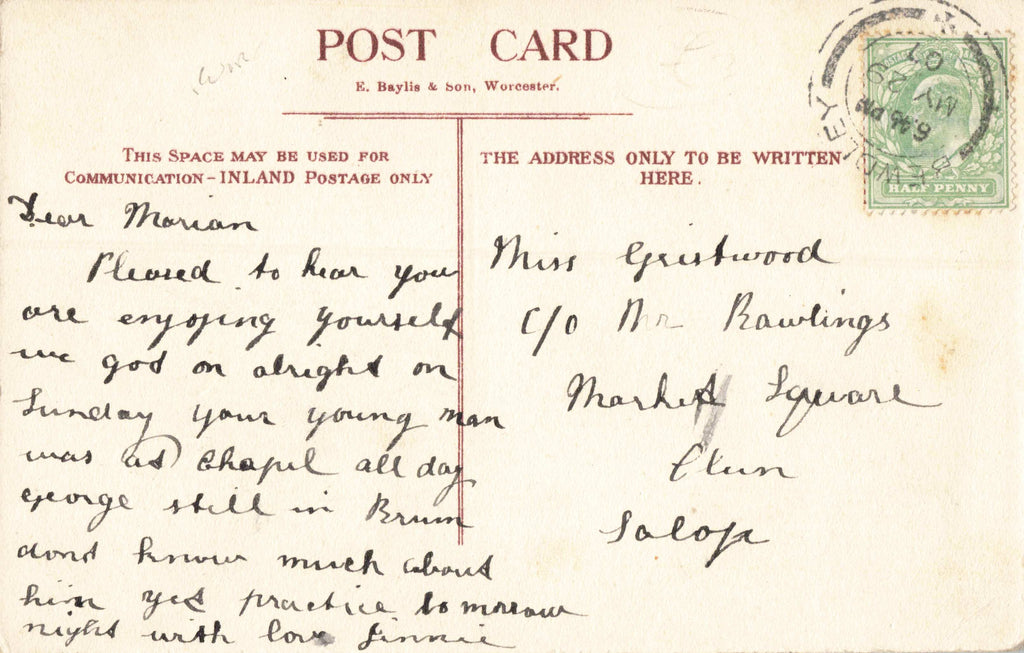 POST CARD
E. Baylis & Son, Worcester.
THIS SPACE MAY BE USED FOR
COMMUNICATION - INLAND POSTAGE ONLY
THE ADDRESS ONLY TO BE WRITTEN
HERE.
BEWDLEY
6.45 PM
MY 29
07
HALF PENNY
Dear Marian
Pleased to hear you
are enjoying yourself
we got on alright on
Sunday your young man
was at Chapel all day
George still in Brum
dont know much about
him yet practice tomorrow
night with love Linnie
Miss Gristwood
c/o Mr Rawlings
Market Square
Clun
Salop